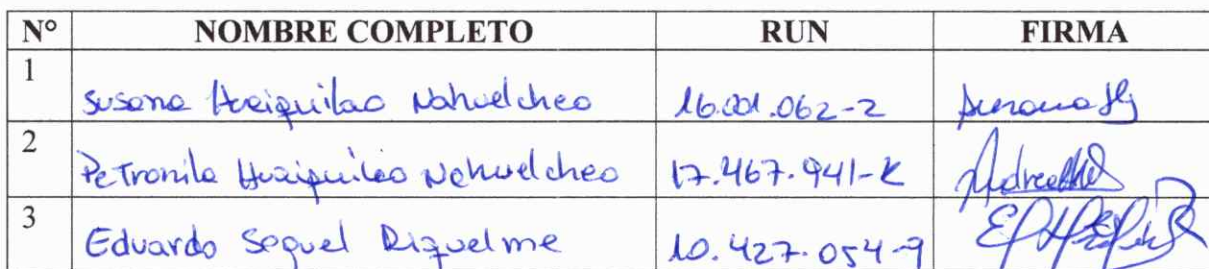 N° NOMBRE COMPLETO RUN FIRMA
1 Susana Huaiquilao Nahuelcheo 16.001.062-2
2 Petronila Huaiquilao Nahuelcheo 17.467.941-K
3 Eduardo Seguel Riquelme 10.427.054-9